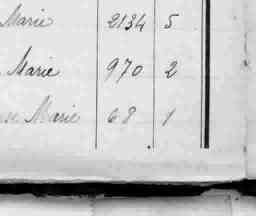 Marie 2134 5
Marie 970 2
Marie 68 1